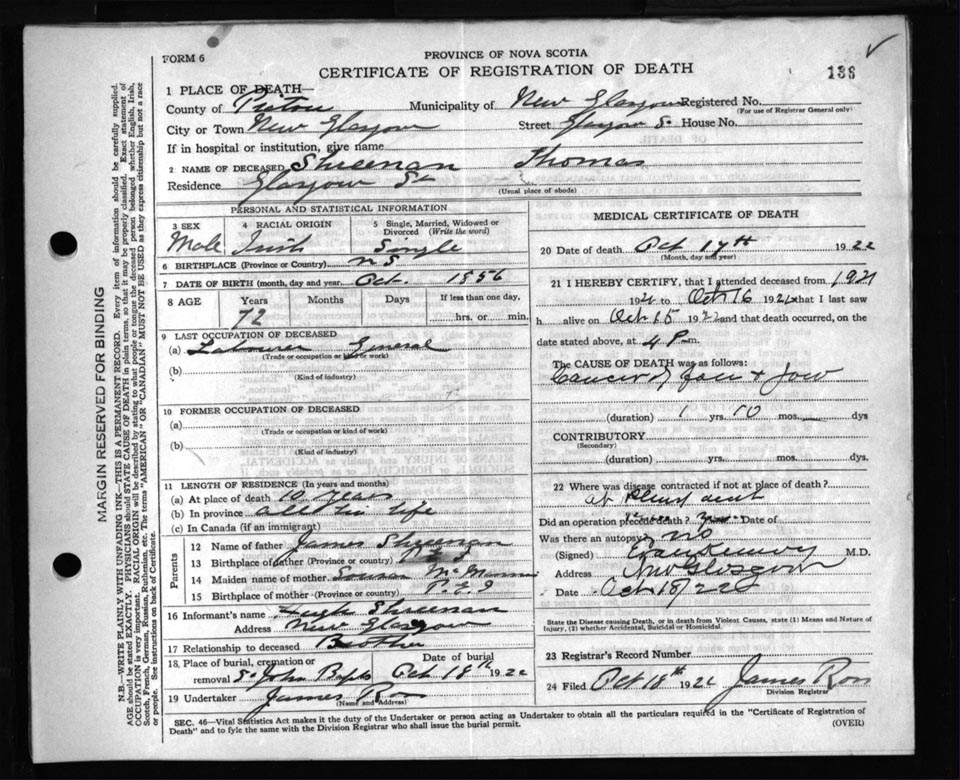 FORM 6
PROVINCE OF NOVA SCOTIA
CERTIFICATE OF REGISTRATION OF DEATH
136
1 PLACE OF DEATH—
County of Pictou Municipality of New Glasgow Registered No.
(For use of Registrar General only)
City or Town New Glasgow Street Glasgow St House No.
If in hospital or institution, give name
2 NAME OF DECEASED Shreenan Thomas
Residence Glasgow St
(Usual place of abode)
PERSONAL AND STATISTICAL INFORMATION
3 SEX 4 RACIAL ORIGIN 5 Single, Married, Widowed or Divorced (Write the word)
Male Irish Single
6 BIRTHPLACE (Province or Country) N S
7 DATE OF BIRTH (month, day and year) Oct. 1856
8 AGE Years Months Days If less than one day,
72 hrs. or min.
9 LAST OCCUPATION OF DECEASED
(a) Labourer General
(Trade or occupation or kind of work)
(b)
(Kind of industry)
10 FORMER OCCUPATION OF DECEASED
(a)
(Trade or occupation or kind of work)
(b)
(Kind of industry)
11 LENGTH OF RESIDENCE (In years and months)
(a) At place of death 10 years
(b) In province all his life
(c) In Canada (if an immigrant)
Parents
12 Name of father James Shreenan
13 Birthplace of father (Province or country)
14 Maiden name of mother Sousan
15 Birthplace of mother (Province or country) P.E.I
16 Informant's name Hugh Shreenan
Address New Glasgow
17 Relationship to deceased Brother
18. Place of burial, cremation or removal St John Bapts Date of burial Oct 18th 1922
19 Undertaker James Ross
(Name and Address)
MEDICAL CERTIFICATE OF DEATH
20 Date of death Oct 17th 1922
(Month, day and year)
21 I HEREBY CERTIFY, that I attended deceased from 1921
192 to Oct 16 192 that I last saw
h alive on Oct 15 1922 and that death occurred, on
date stated above, at 4 P m.
The CAUSE OF DEATH was as follows:
Cancer of face + jaw
(duration) 1 yrs. 10 mos. dys
CONTRIBUTORY
(Secondary)
(duration) yrs. mos. dys
22 Where was disease contracted if not at place of death?
at
Did an operation precede death? Date of
Was there an autopsy? no
(Signed) M.D.
Address New Glasgow
Date Oct 18/22
State the Disease causing Death, or in death from Violent Causes, state (1) Means and Nature of Injury, (2) whether Accidental, Suicidal or Homicidal.
23 Registrar's Record Number
24 Filed Oct 18th 1922 James Ross
Division Registrar
SEC. 46—Vital Statistics Act makes it the duty of the Undertaker or person acting as Undertaker to obtain all the particulars required in the "Certificate of Registration of
Death" and to fyle the same with the Division Registrar who shall issue the burial permit.
(OVER)
MARGIN RESERVED FOR BINDING
N.B.—WRITE PLAINLY WITH UNFADING INK—THIS IS A PERMANENT RECORD. Every item of information should be carefully supplied.
AGE should be stated EXACTLY. PHYSICIANS should STATE CAUSE OF DEATH in plain terms, so that it may be properly classified. Exact statement of
OCCUPATION is very important. RACIAL ORIGIN will be described by stating to what people or tongue the deceased person belonged whether English, Irish,
Scotch, French, German, Russian, Ruthenian, etc. The terms "AMERICAN" or "CANADIAN" MUST NOT BE USED as they express citizenship but not a race
or people. See instructions on back of Certificate.